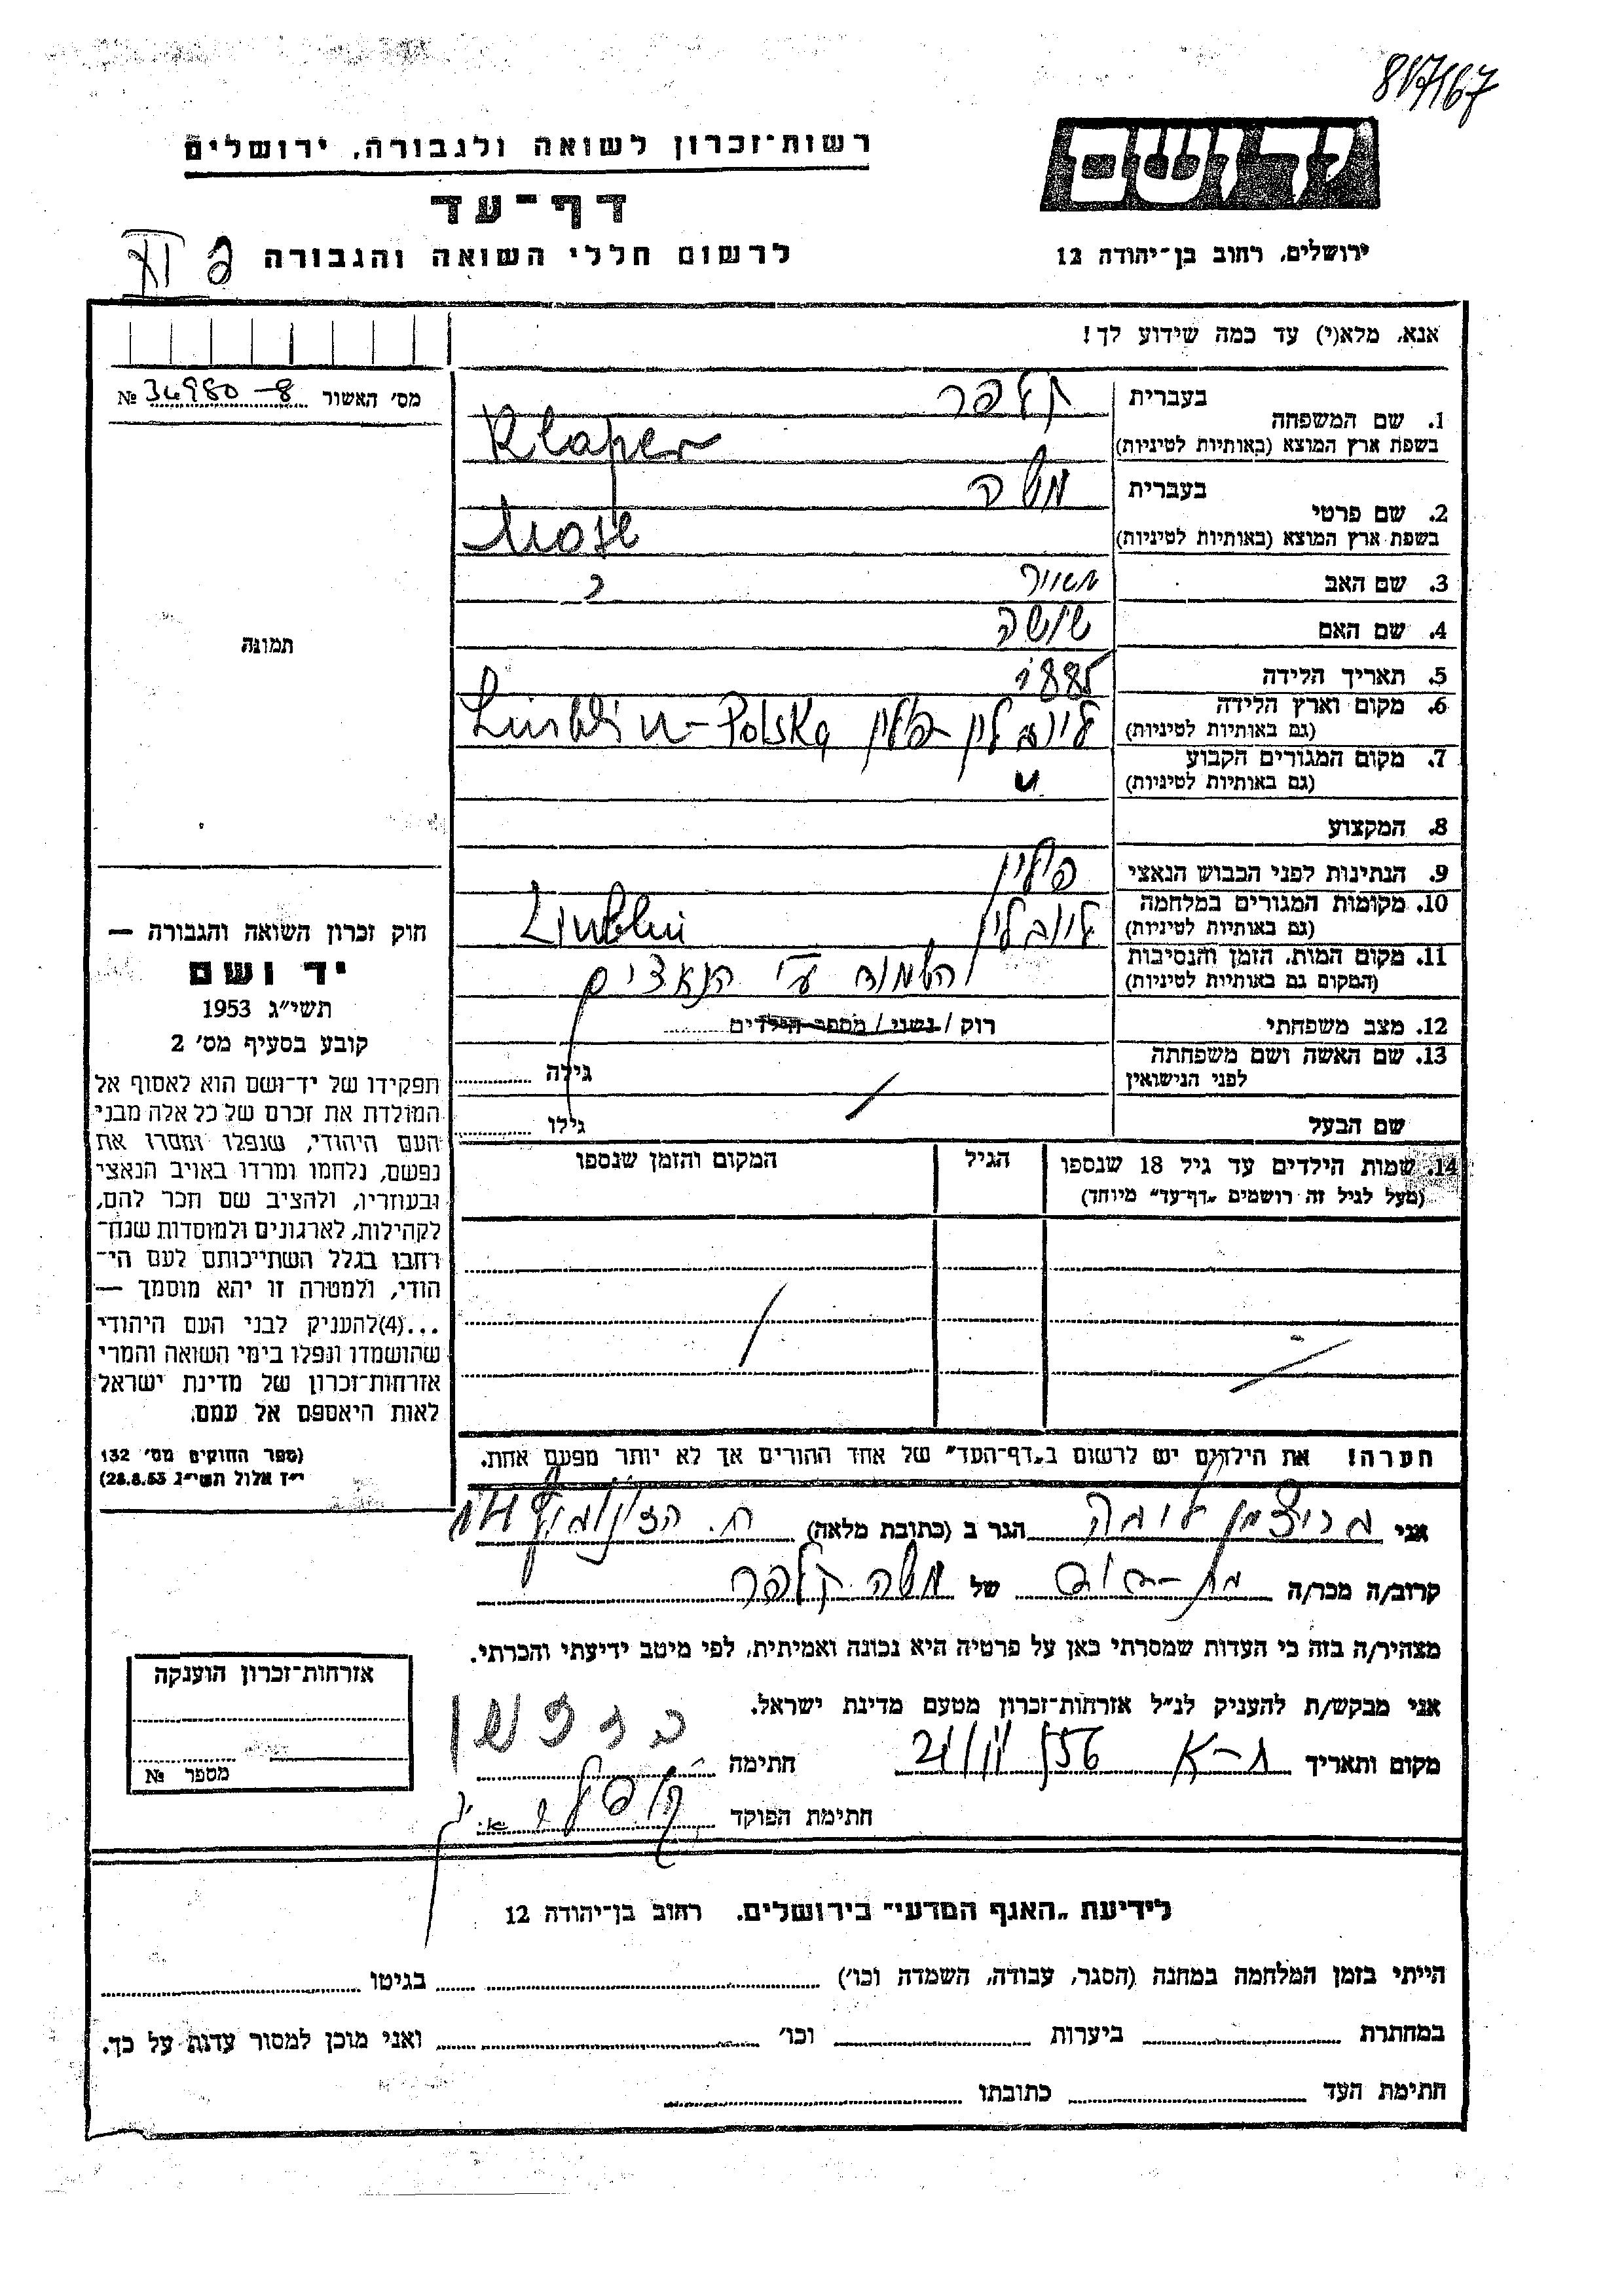 817167
יד ושם
רשות־זכרון לשואה ולגבורה, ירושלים
דף־עד
לרשום חללי השואה והגבורה
ירושלים, רחוב בן־יהודה 12
אנא, מלא(י) עד כמה שידוע לך!
מס' האשור № 34980-8
1. שם המשפחה בעברית קלפר
בשפת ארץ המוצא (באותיות לטיניות) Klaper
2. שם פרטי בעברית משה
בשפת ארץ המוצא (באותיות לטיניות) Mosze
3. שם האב מאיר
4. שם האם שושה
5. תאריך הלידה 1885
6. מקום וארץ הלידה (גם באותיות לטיניות) לובלין פולין Lublin-Polska
7. מקום המגורים הקבוע (גם באותיות לטיניות) "
8. המקצוע
9. הנתינות לפני הכבוש הנאצי פולין
10. מקומות המגורים במלחמה (גם באותיות לטיניות) לובלין Lublin
11. מקום המות, הזמן והנסיבות (המקום גם באותיות לטיניות) הושמד ע"י הנאצים
12. מצב משפחתי רוק / נשוי / מספר הילדים
13. שם האשה ושם משפחתה לפני הנישואין גילה
שם הבעל גילו
14. שמות הילדים עד גיל 18 שנספו הגיל המקום והזמן שנספו
(מעל לגיל זה רושמים „דף־עד" מיוחד)
הערה! את הילדים יש לרשום ב„דף־העד" של אחד ההורים אך לא יותר מפעם אחת.
תמונה
חוק זכרון השואה והגבורה —
יד ושם
תשי"ג 1953
קובע בסעיף מס' 2
תפקידו של יד־ושם הוא לאסוף אל
המולדת את זכרם של כל אלה מבני
העם היהודי, שנפלו ומסרו את
נפשם, נלחמו ומרדו באויב הנאצי
ובעוזריו, ולהציב שם וזכר להם,
לקהילות, לארגונים ולמוסדות שנח־
רבו בגלל השתייכותם לעם הי־
הודי, ולמטרה זו יהא מוסמך —
...(4)להעניק לבני העם היהודי
שהושמדו ונפלו בימי השואה והמרי
אזרחות־זכרון של מדינת ישראל
לאות היאספם אל עמם.
(ספר החוקים מס' 132
י"ז אלול תשי"ג 28.8.53)
אני הגר ב (כתובת מלאה)
קרוב/ה מכר/ה של משה קלפר
מצהיר/ה בזה כי העדות שמסרתי כאן על פרטיה היא נכונה ואמיתית, לפי מיטב ידיעתי והכרתי.
אני מבקש/ת להעניק לנ"ל אזרחות־זכרון מטעם מדינת ישראל.
מקום ותאריך ת-א חתימה
חתימת הפוקד
אזרחות־זכרון הוענקה
מספר №
לידיעת „האגף המדעי" בירושלים, רחוב בן־יהודה 12
הייתי בזמן המלחמה במחנה (הסגר, עבודה, השמדה וכו') בגיטו
במחתרת ביערות וכו' ואני מוכן למסור עדות על כך.
חתימת העד כתובתו